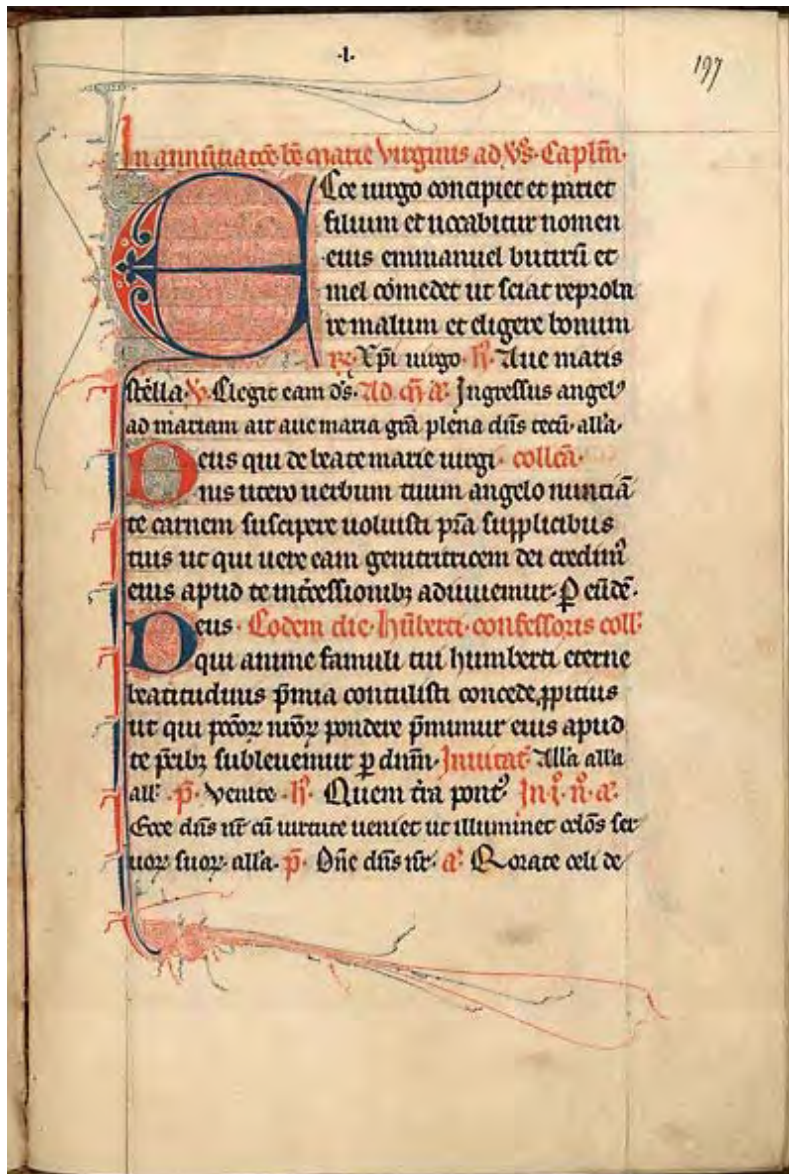 ·l·
197
In annūtiatōe bē marie virginis ad v̄s· Capl̄m·
Ecce uirgo concipiet et pariet
filium et uocabitur nomen
eius emmanuel butirū et
mel cōmedet ut sciat reproba
re malum et eligere bonum
R̄· Xp̄i uirgo· h̄· Aue maris
stella· v̄· Elegit eam d̄s· Ad m̄ a· Ingressus angelꝰ
ad mariam ait aue maria grā plena dn̄s tecū· all'a·
Deus qui de beate marie uirgi· collc̄a·
nis utero uerbum tuum angelo nunciā
te carnem suscipere uoluisti pr̄a supplicibus
tuis ut qui uere eam genitricem dei credimꝰ
eius apud te int̄cessionibꝫ adiuuemur· P eūdē·
Deus· Eodem die· hūberti· confessoris coll·
qui anime famuli tui humberti eterne
beatitudinis p̄mia contulisti concede ꝓpitius
ut qui pctōꝝ nr̄oꝝ pondere p̄mimur eius apud
te p̄cibꝫ subleuemur ꝑ dn̄m· Inuitat̄ All'a all'a
all'· p̄· Venite· h̄· Quem t̄ra pontꝰ In·i·n̄· a·
Ecce dn̄s nr̄ cū uirtute ueniet ut illuminet oclōs ser
uoꝝ suoꝝ· all'a· p̄· Dn̄e dn̄s nr̄· a· Rorate celi de